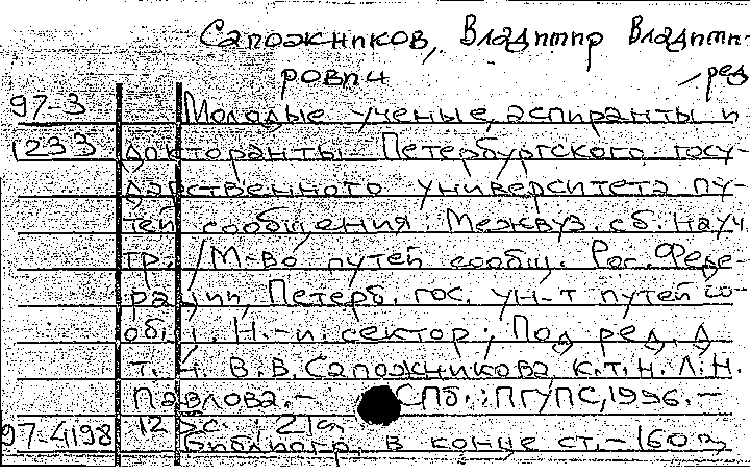 Сапожников, Владимир Владими-
рович ред
97-3 Молодые ученые, аспиранты и
1233 докторанты Петербургского госу-
дарственного университета пу-
тей сообщения. Межвуз. сб. науч.
тр. / М-во путей сообщ. Рос. Феде-
рации, Петерб. гос. ун-т путей со-
общ. Н.-и. сектор; Под ред. д.
т. н. В.В. Сапожникова, к.т.н. Л.Н.
Павлова. - СПб.: ПГУПС, 1996. -
с. 21
97-4198 Библиогр. в конце ст. - 160